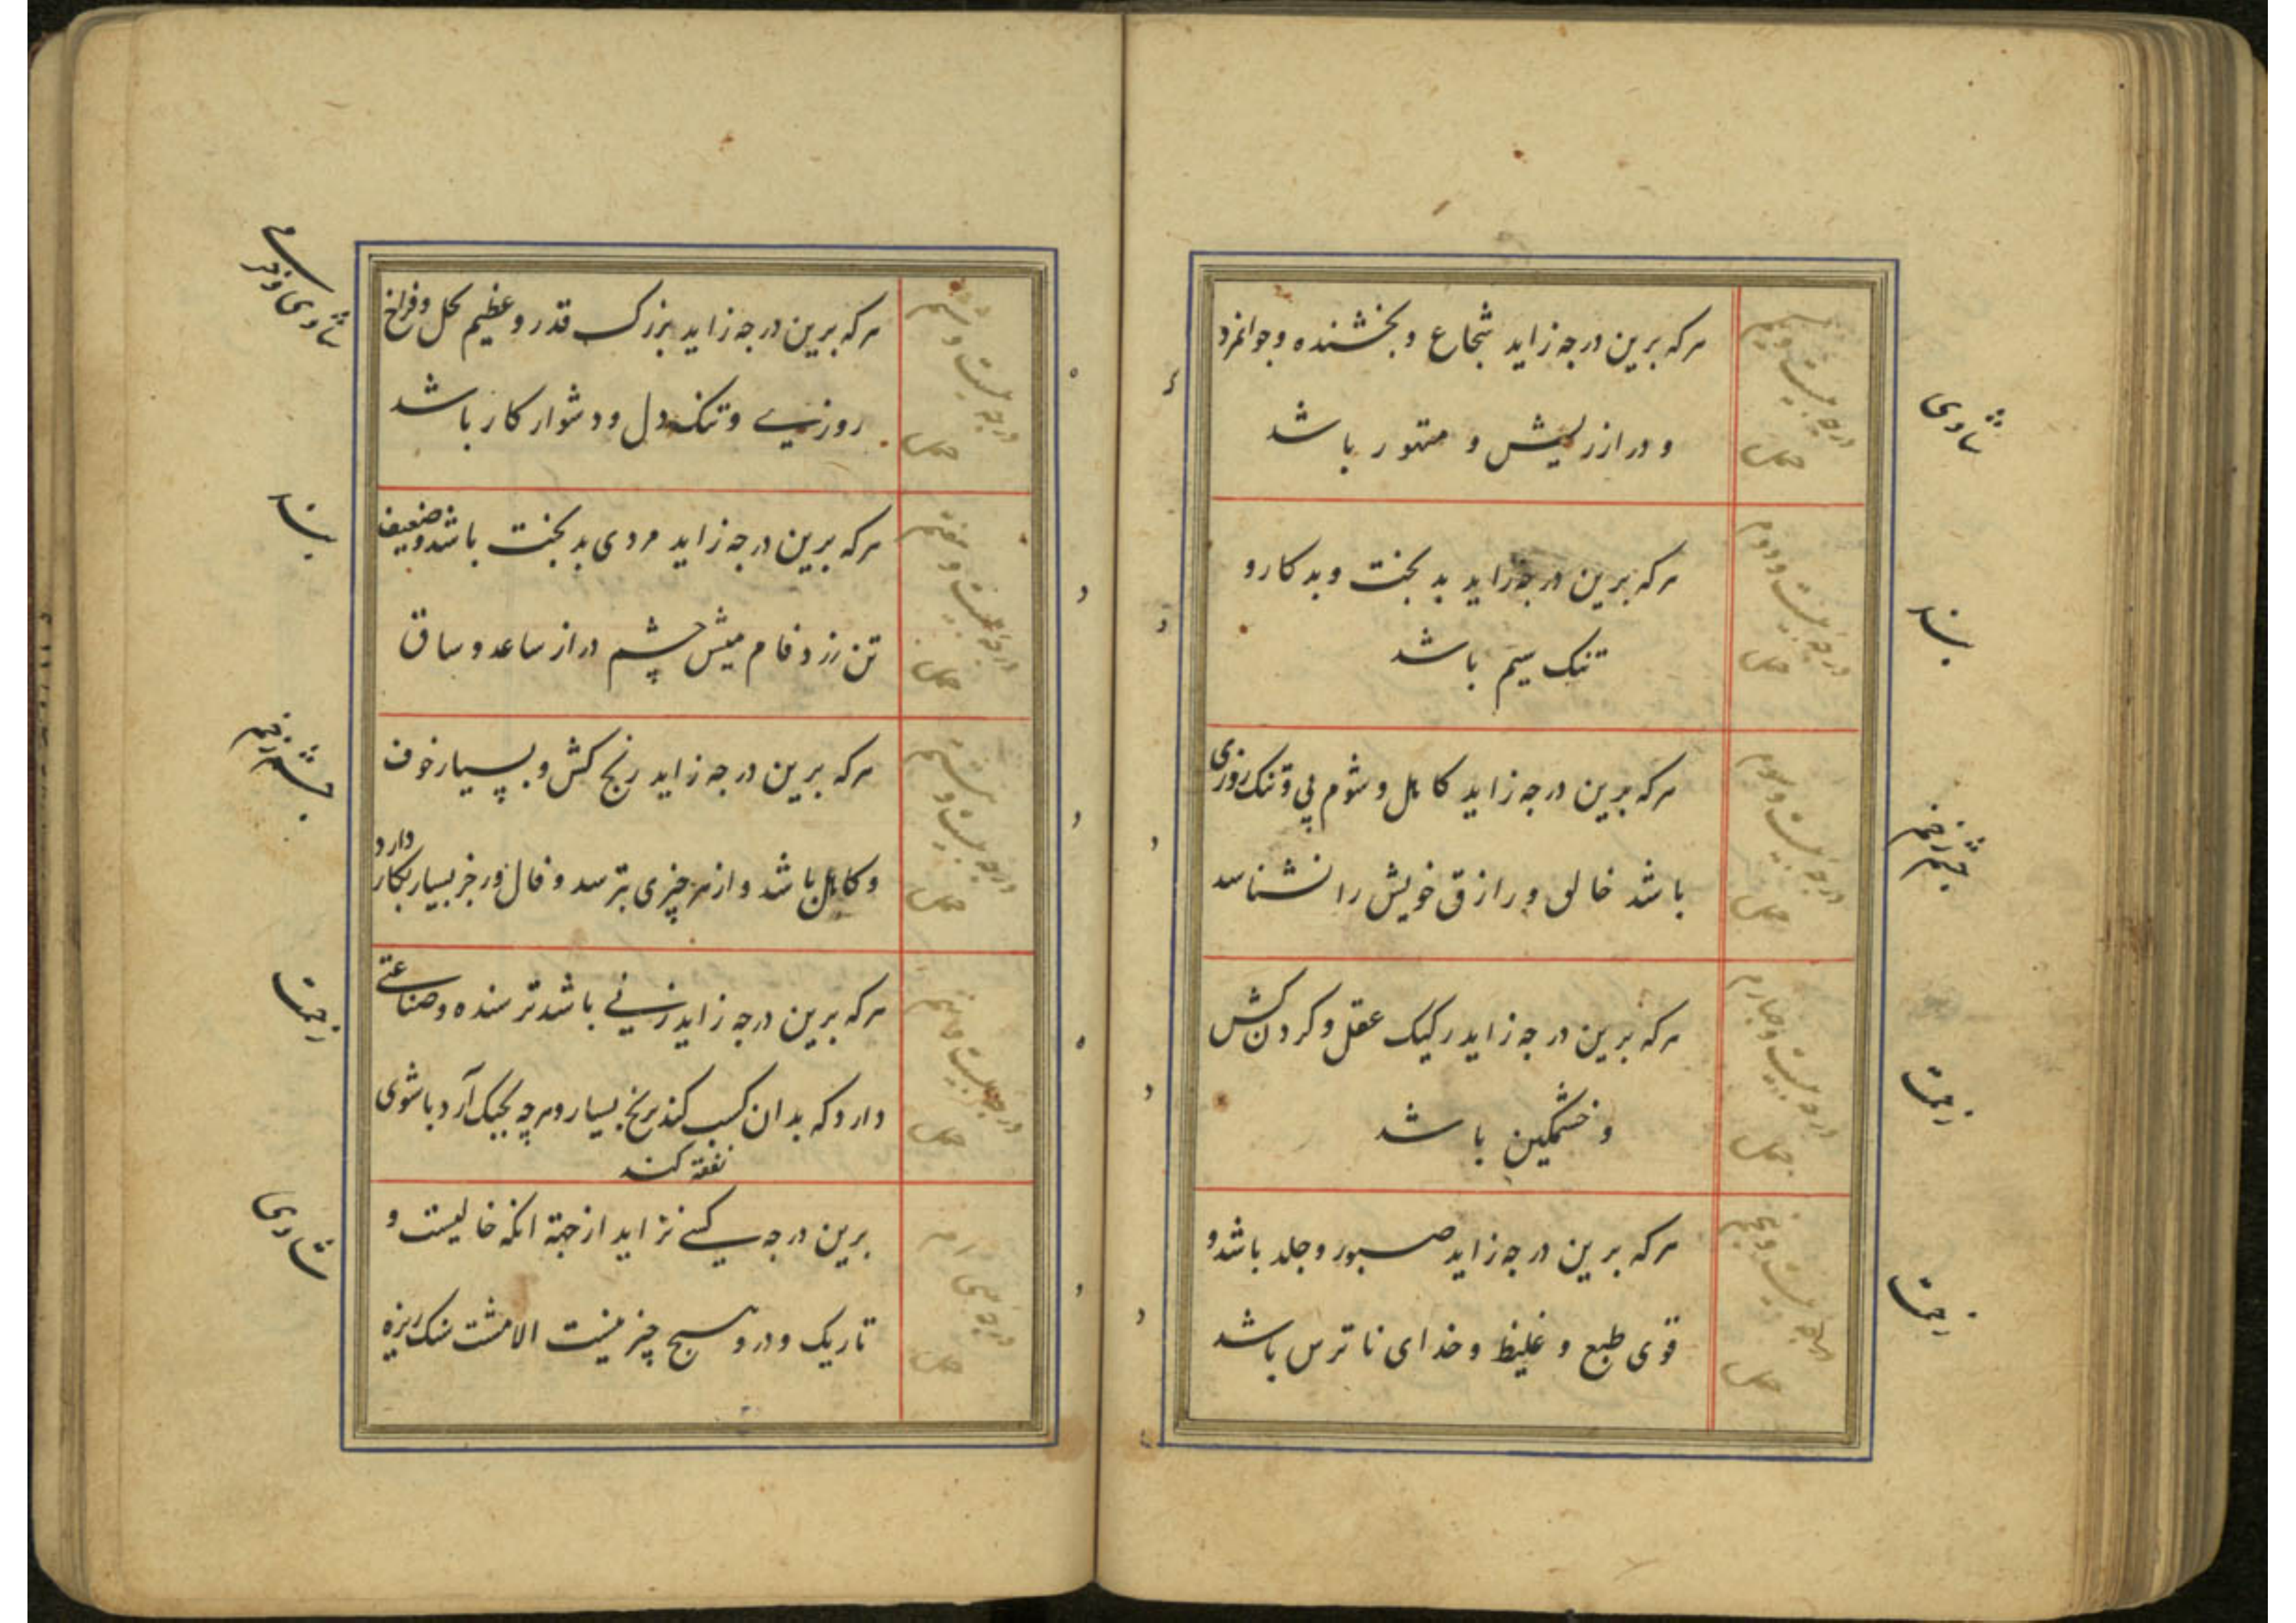 درجه بیست و یکم
هرکه برین درجه زاید شجاع و بخشنده و جوانمرد
و دراز ریش و متهور باشد
درجه بیست و دوم
هرکه برین درجه زاید بدبخت و بدکار و
تنک سیم باشد
درجه بیست و سوم
هرکه برین درجه زاید کاهل و شوم پی و تنک روزی
باشد خالق و رازق خویش را نشناسد
درجه بیست و چهارم
هرکه برین درجه زاید رکیک عقل و کردن کش
و خشمکین باشد
درجه بیست و پنجم
هرکه برین درجه زاید صبور و جلد باشد و
قوی طبع و غلیظ و خدای ناترس باشد
درجه بیست و ششم
هرکه برین درجه زاید بزرک قدر و عظیم محل و فراخ
روزی و تنک دل و دشوار کار باشد
درجه بیست و هفتم
هرکه برین درجه زاید مردی بدبخت باشد و ضعیف
تن زرد فام میش چشم دراز ساعد و ساق
درجه بیست و هشتم
هرکه برین درجه زاید رنج کش و بسیار خوف
و کاهل باشد و از هر چیزی بترسد و فال و زجر بسیار بکار دارد
درجه بیست و نهم
هرکه برین درجه زاید زنی باشد ترسنده و صناعتی
دارد که بدان کسب کند برنج بسیار و هرچه بچنک آرد با شوی
نفقه کند
درجه سی ام
برین درجه کسی نزاید از جهة انکه خالیست و
تاریک و درو هیچ چیز نیست الا مشت سنک ریزه